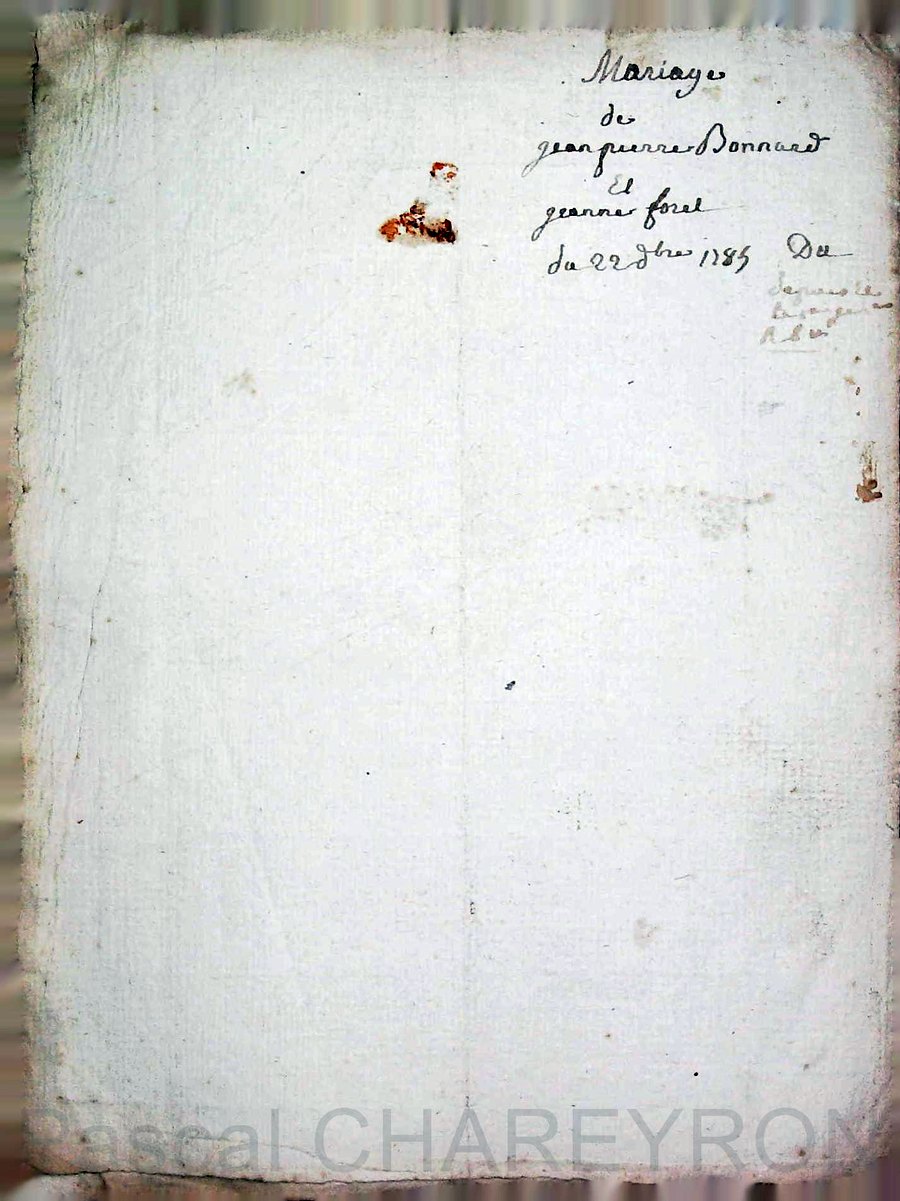 Mariage
de
jean pierre Bonnard
Et
jeanne forel
du 22 dbre 1785 Du
Pascal CHAREYRON